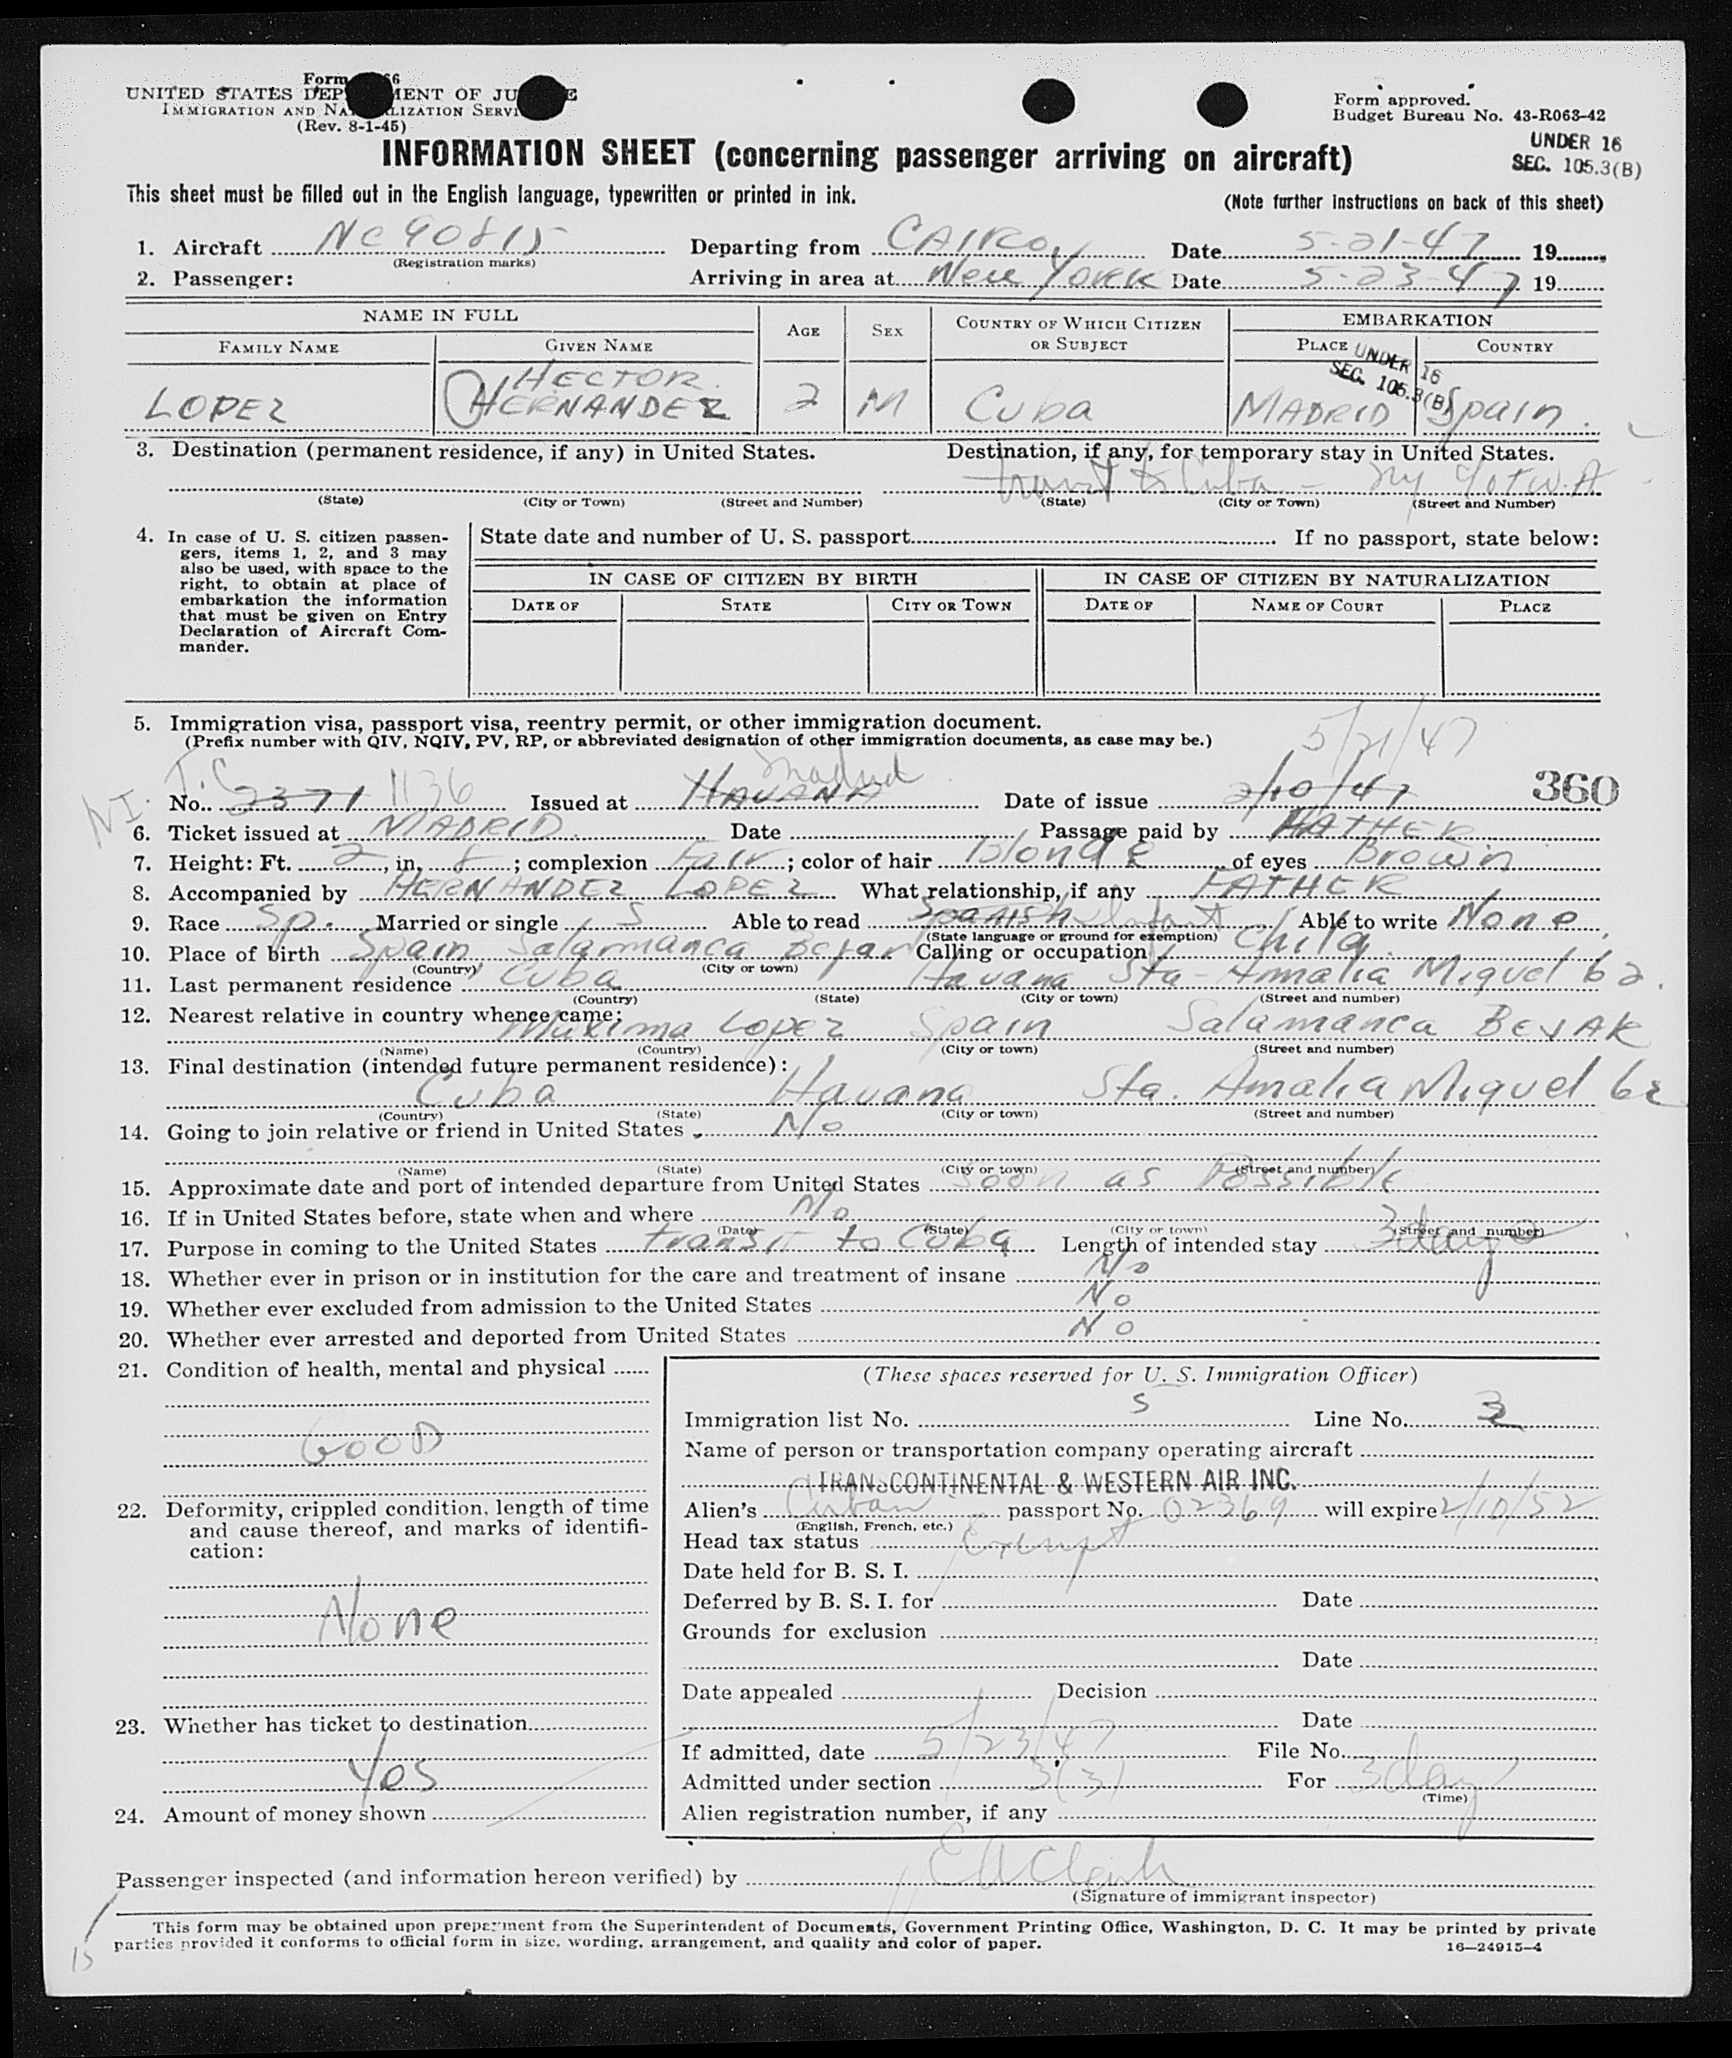 Form 66
UNITED STATES DEP MENT OF JU E
IMMIGRATION AND NA LIZATION SERVI
(Rev. 8-1-45)
Form approved.
Budget Bureau No. 43-R063-42
UNDER 16
SEC. 105.3(B)
INFORMATION SHEET (concerning passenger arriving on aircraft)
This sheet must be filled out in the English language, typewritten or printed in ink.
(Note further instructions on back of this sheet)
1. Aircraft NC 90815 Departing from CAIRO Date 5-21-47 19
(Registration marks)
2. Passenger: Arriving in area at New York Date 5-23-47 19
NAME IN FULL AGE SEX COUNTRY OF WHICH CITIZEN OR SUBJECT EMBARKATION
FAMILY NAME GIVEN NAME PLACE COUNTRY
UNDER 16
SEC. 105.3(B)
HECTOR
LOPEZ HERNANDEZ 2 M Cuba MADRID Spain
3. Destination (permanent residence, if any) in United States. Destination, if any, for temporary stay in United States.
transit to Cuba - NY
(State) (City or Town) (Street and Number) (State) (City or Town) (Street and Number)
4. In case of U. S. citizen passengers, items 1, 2, and 3 may also be used, with space to the right, to obtain at place of embarkation the information that must be given on Entry Declaration of Aircraft Commander.
State date and number of U. S. passport If no passport, state below:
IN CASE OF CITIZEN BY BIRTH IN CASE OF CITIZEN BY NATURALIZATION
DATE OF STATE CITY OR TOWN DATE OF NAME OF COURT PLACE
5. Immigration visa, passport visa, reentry permit, or other immigration document.
(Prefix number with QIV, NQIV, PV, RP, or abbreviated designation of other immigration documents, as case may be.)
5/21/47
T.C. Madrid
NI. No. 2371 1136 Issued at HAVANA Date of issue 2/10/47 360
6. Ticket issued at MADRID Date Passage paid by FATHER
7. Height: Ft. 2, in. 8; complexion Fair; color of hair Blonde of eyes Brown
8. Accompanied by HERNANDEZ LOPEZ What relationship, if any FATHER
9. Race Sp. Married or single S Able to read Spanish Infant Able to write None
(State language or ground for exemption)
10. Place of birth Spain Salamanca Bejar Calling or occupation Child
(Country) (City or town)
11. Last permanent residence Cuba Havana Sta Amalia Miguel 62.
(Country) (State) (City or town) (Street and number)
12. Nearest relative in country whence came:
Maxima Lopez Spain Salamanca BEJAR
(Name) (Country) (City or town) (Street and number)
13. Final destination (intended future permanent residence):
Cuba Havana Sta. Amalia Miguel 62
(Country) (State) (City or town) (Street and number)
14. Going to join relative or friend in United States No
(Name) (State) (City or town) (Street and number)
15. Approximate date and port of intended departure from United States Soon as Possible
16. If in United States before, state when and where No
(Date) (State) (City or town) (Street and number)
17. Purpose in coming to the United States transit to Cuba Length of intended stay 3 days
18. Whether ever in prison or in institution for the care and treatment of insane No
19. Whether ever excluded from admission to the United States No
20. Whether ever arrested and deported from United States No
21. Condition of health, mental and physical
GOOD
22. Deformity, crippled condition, length of time and cause thereof, and marks of identification:
None
23. Whether has ticket to destination
Yes
24. Amount of money shown
(These spaces reserved for U. S. Immigration Officer)
Immigration list No. 5 Line No. 3
Name of person or transportation company operating aircraft
TRANSCONTINENTAL & WESTERN AIR INC.
Alien's Cuban passport No. 02369 will expire 2/10/52
(English, French, etc.)
Head tax status Exempt
Date held for B. S. I.
Deferred by B. S. I. for Date
Grounds for exclusion
Date
Date appealed Decision
Date
If admitted, date 5/23/47 File No.
Admitted under section 3(3) For 3 days
(Time)
Alien registration number, if any
Passenger inspected (and information hereon verified) by
(Signature of immigrant inspector)
This form may be obtained upon prepayment from the Superintendent of Documents, Government Printing Office, Washington, D. C. It may be printed by private
parties provided it conforms to official form in size, wording, arrangement, and quality and color of paper.
16—24915-4
15